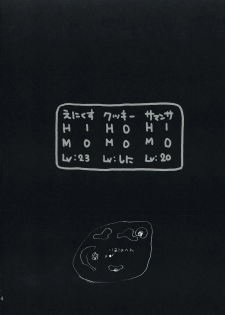 えにくす クッキー サマンサ
H I H O H I
M O M O M O
Lv:23 Lv:しに Lv:20
4